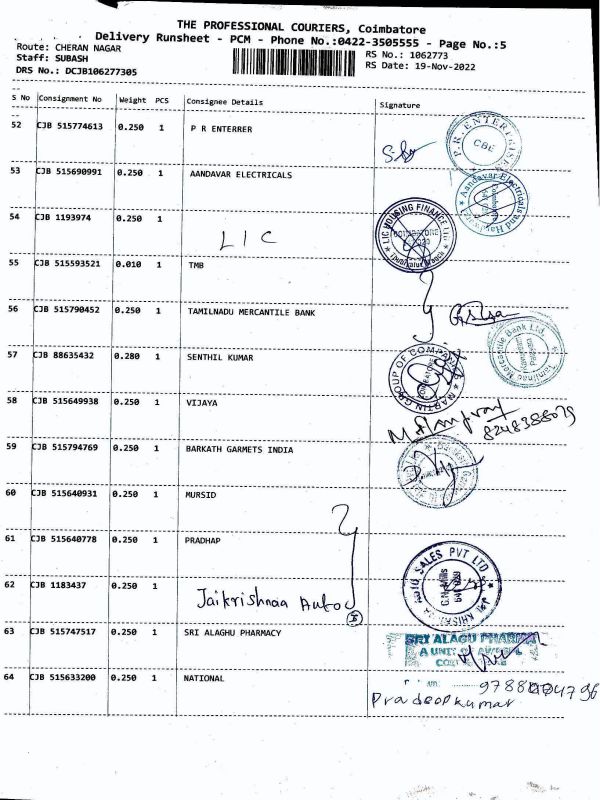 THE PROFESSIONAL COURIERS, Coimbatore
Delivery Runsheet - PCM - Phone No.:0422-3505555 - Page No.:5
Route: CHERAN NAGAR
RS No.: 1062773
Staff: SUBASH
RS Date: 19-Nov-2022
DRS No.: DCJB106277305
S No Consignment No Weight PCS Consignee Details Signature
52 CJB 515774613 0.250 1 P R ENTERRER
P.R. ENTERPRISE
CBE
53 CJB 515690991 0.250 1 AANDAVAR ELECTRICALS
Aandavar Electricals and
54 CJB 1193974 0.250 1 LIC
LIC HOUSING FINANCE Ltd
55 CJB 515593521 0.010 1 TMB
56 CJB 515790452 0.250 1 TAMILNADU MERCANTILE BANK
Tamilnad Mercantile Bank Ltd.
57 CJB 88635432 0.280 1 SENTHIL KUMAR
MARTIN GROUP OF COMPANIES
58 CJB 515649938 0.250 1 VIJAYA
8248388079
59 CJB 515794769 0.250 1 BARKATH GARMETS INDIA
60 CJB 515640931 0.250 1 MURSID
61 CJB 515640778 0.250 1 PRADHAP
62 CJB 1183437 0.250 1 Jaikrishnaa Auto
AUTO SALES PVT LTD
G.N. Mills
63 CJB 515747517 0.250 1 SRI ALAGHU PHARMACY
SRI ALAGU PHARMA
A UNIT OF
64 CJB 515633200 0.250 1 NATIONAL
Pradeepkumar